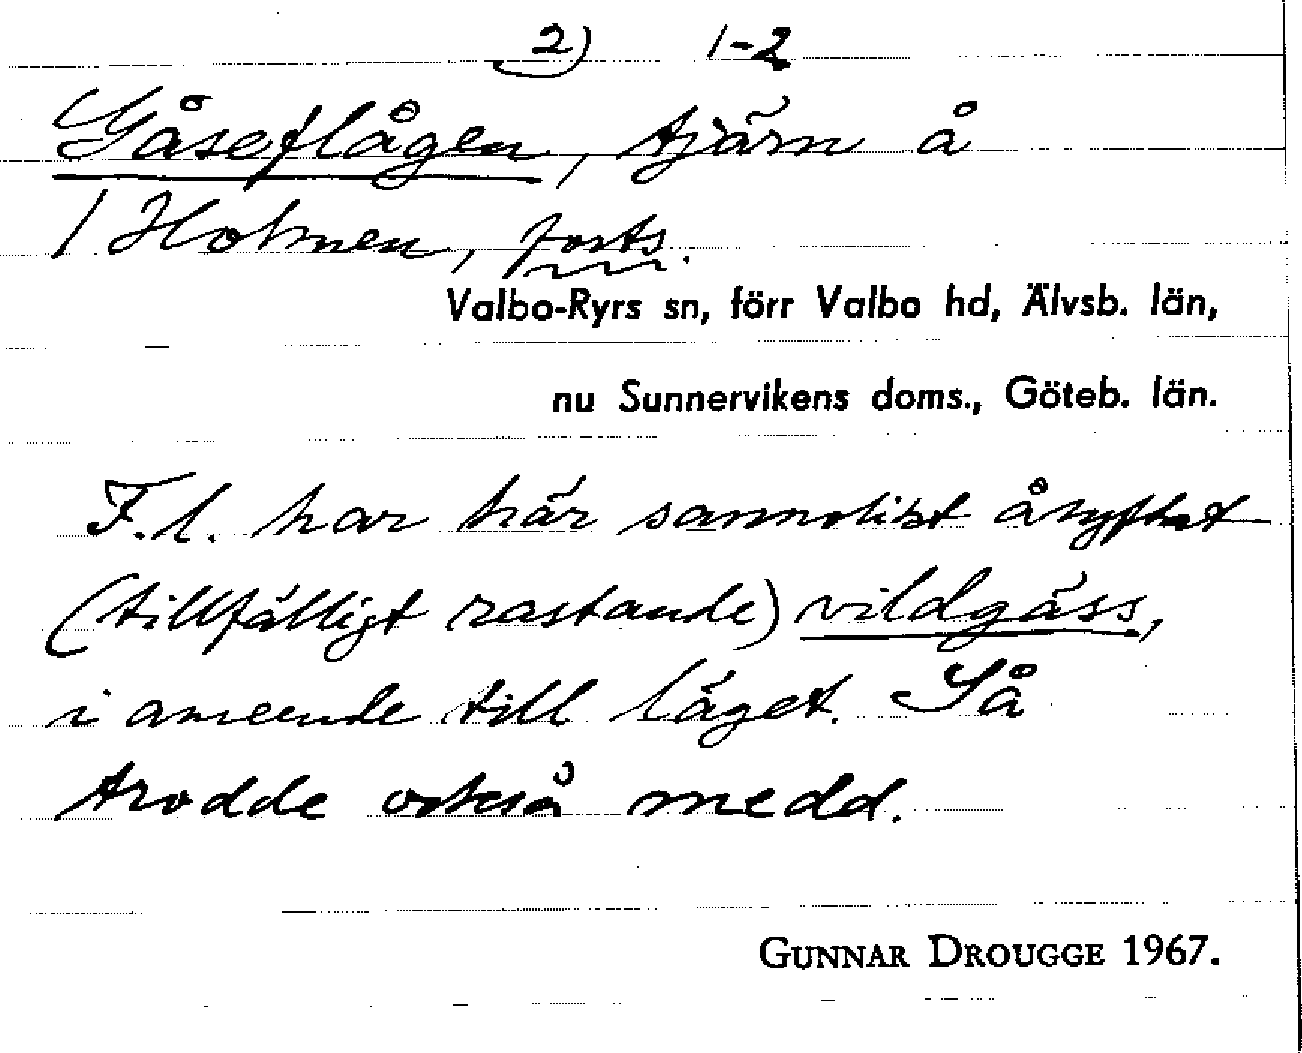 2) 1-2
Gåseflågen, tjärn å
1 Holmen, forts.
Valbo-Ryrs sn, förr Valbo hd, Älvsb. län,
nu Sunnervikens doms., Göteb. län.
F.l. har här sannolikt åsyftat
(tillfälligt rastande) vildgäss,
i anseende till läget. Så
trodde också medd.
GUNNAR DROUGGE 1967.